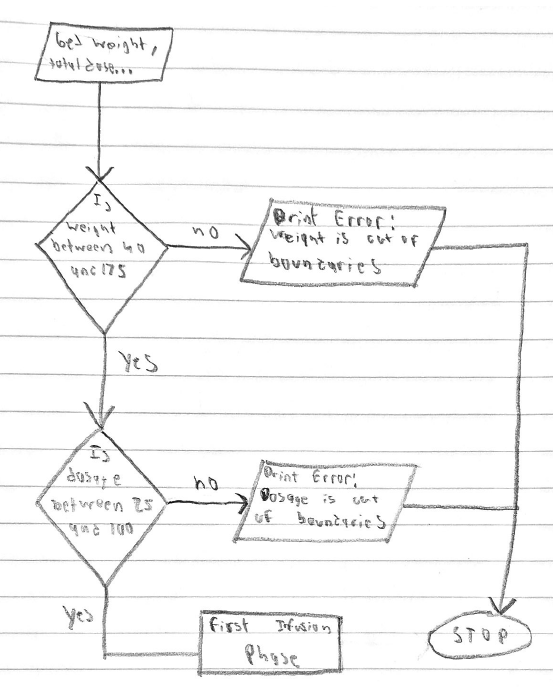 weight,
total dose...
Is
weight
between 40
and 175
no
Print Error!
Weight is out of
boundaries
yes
Is
dosage
between 25
and 100
no
Print Error!
Dosage is out
of boundaries
yes
First Infusion
Phase
STOP